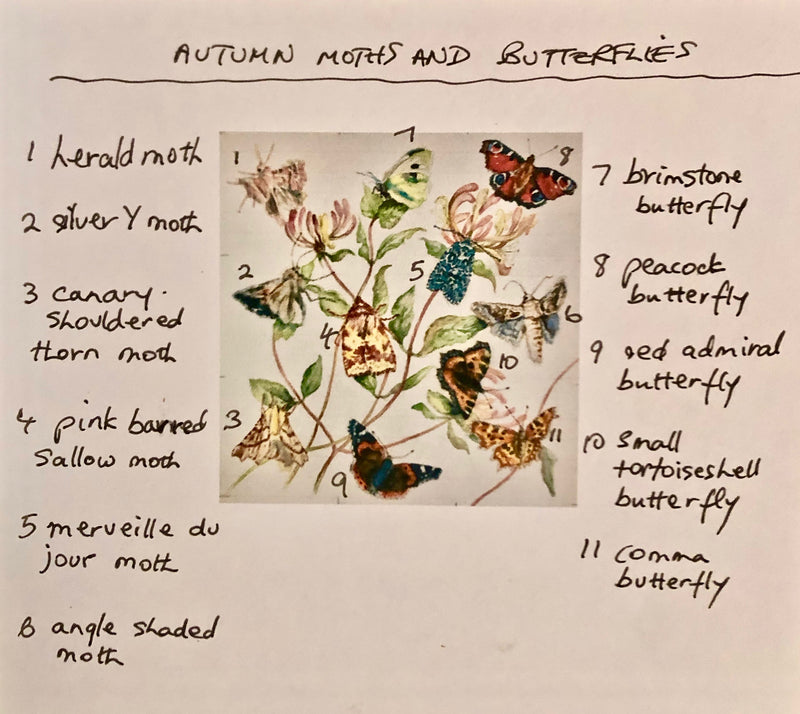 AUTUMN MOTHS AND BUTTERFLIES
1 herald moth
2 silver Y moth
3 canary.
shouldered
thorn moth
4 pink barred
sallow moth
5 merveille du
jour moth
6 angle shaded
moth
1
2
3
4
5
6
7
8
9
10
11
7 brimstone
butterfly
8 peacock
butterfly
9 red admiral
butterfly
10 small
tortoiseshell
butterfly
11 comma
butterfly